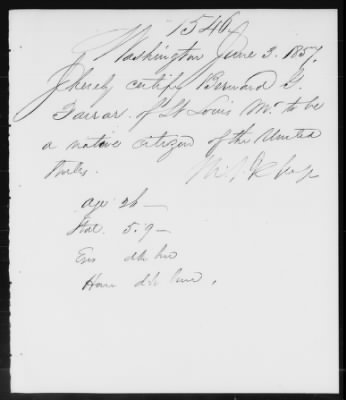 1546
Washington June 3. 1857.
I hereby certify Bernard G.
Farrar of St Louis Mo. to be
a native citizen of the United
States.
age 26 —
Stat. 5.9 —
Eyes dk
Hair dk